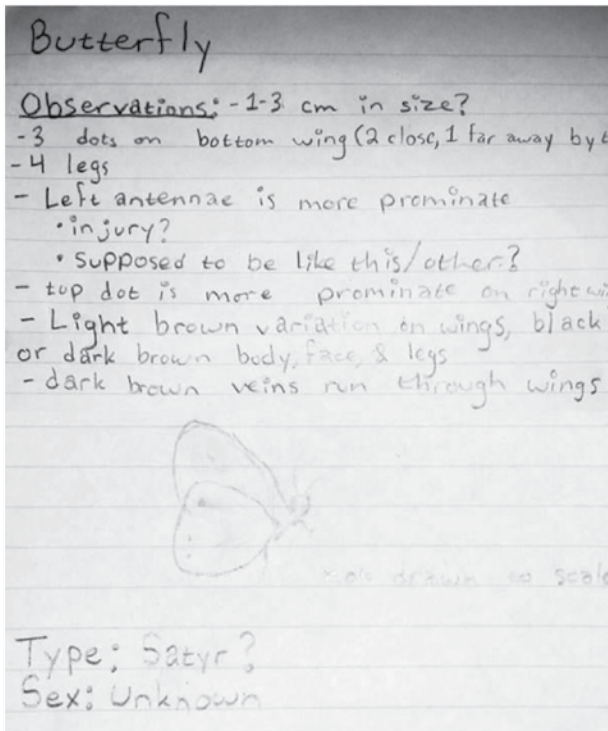 Butterfly
Observations: - 1-3 cm in size?
- 3 dots on bottom wing (2 close, 1 far away by
- 4 legs
- Left antennae is more prominate
• injury?
• supposed to be like this/other?
- top dot is more prominate on right
- Light brown variation on wings, black
or dark brown body, face, & legs
- dark brown veins run through wings
not drawn to scale
Type: Satyr?
Sex: Unknown